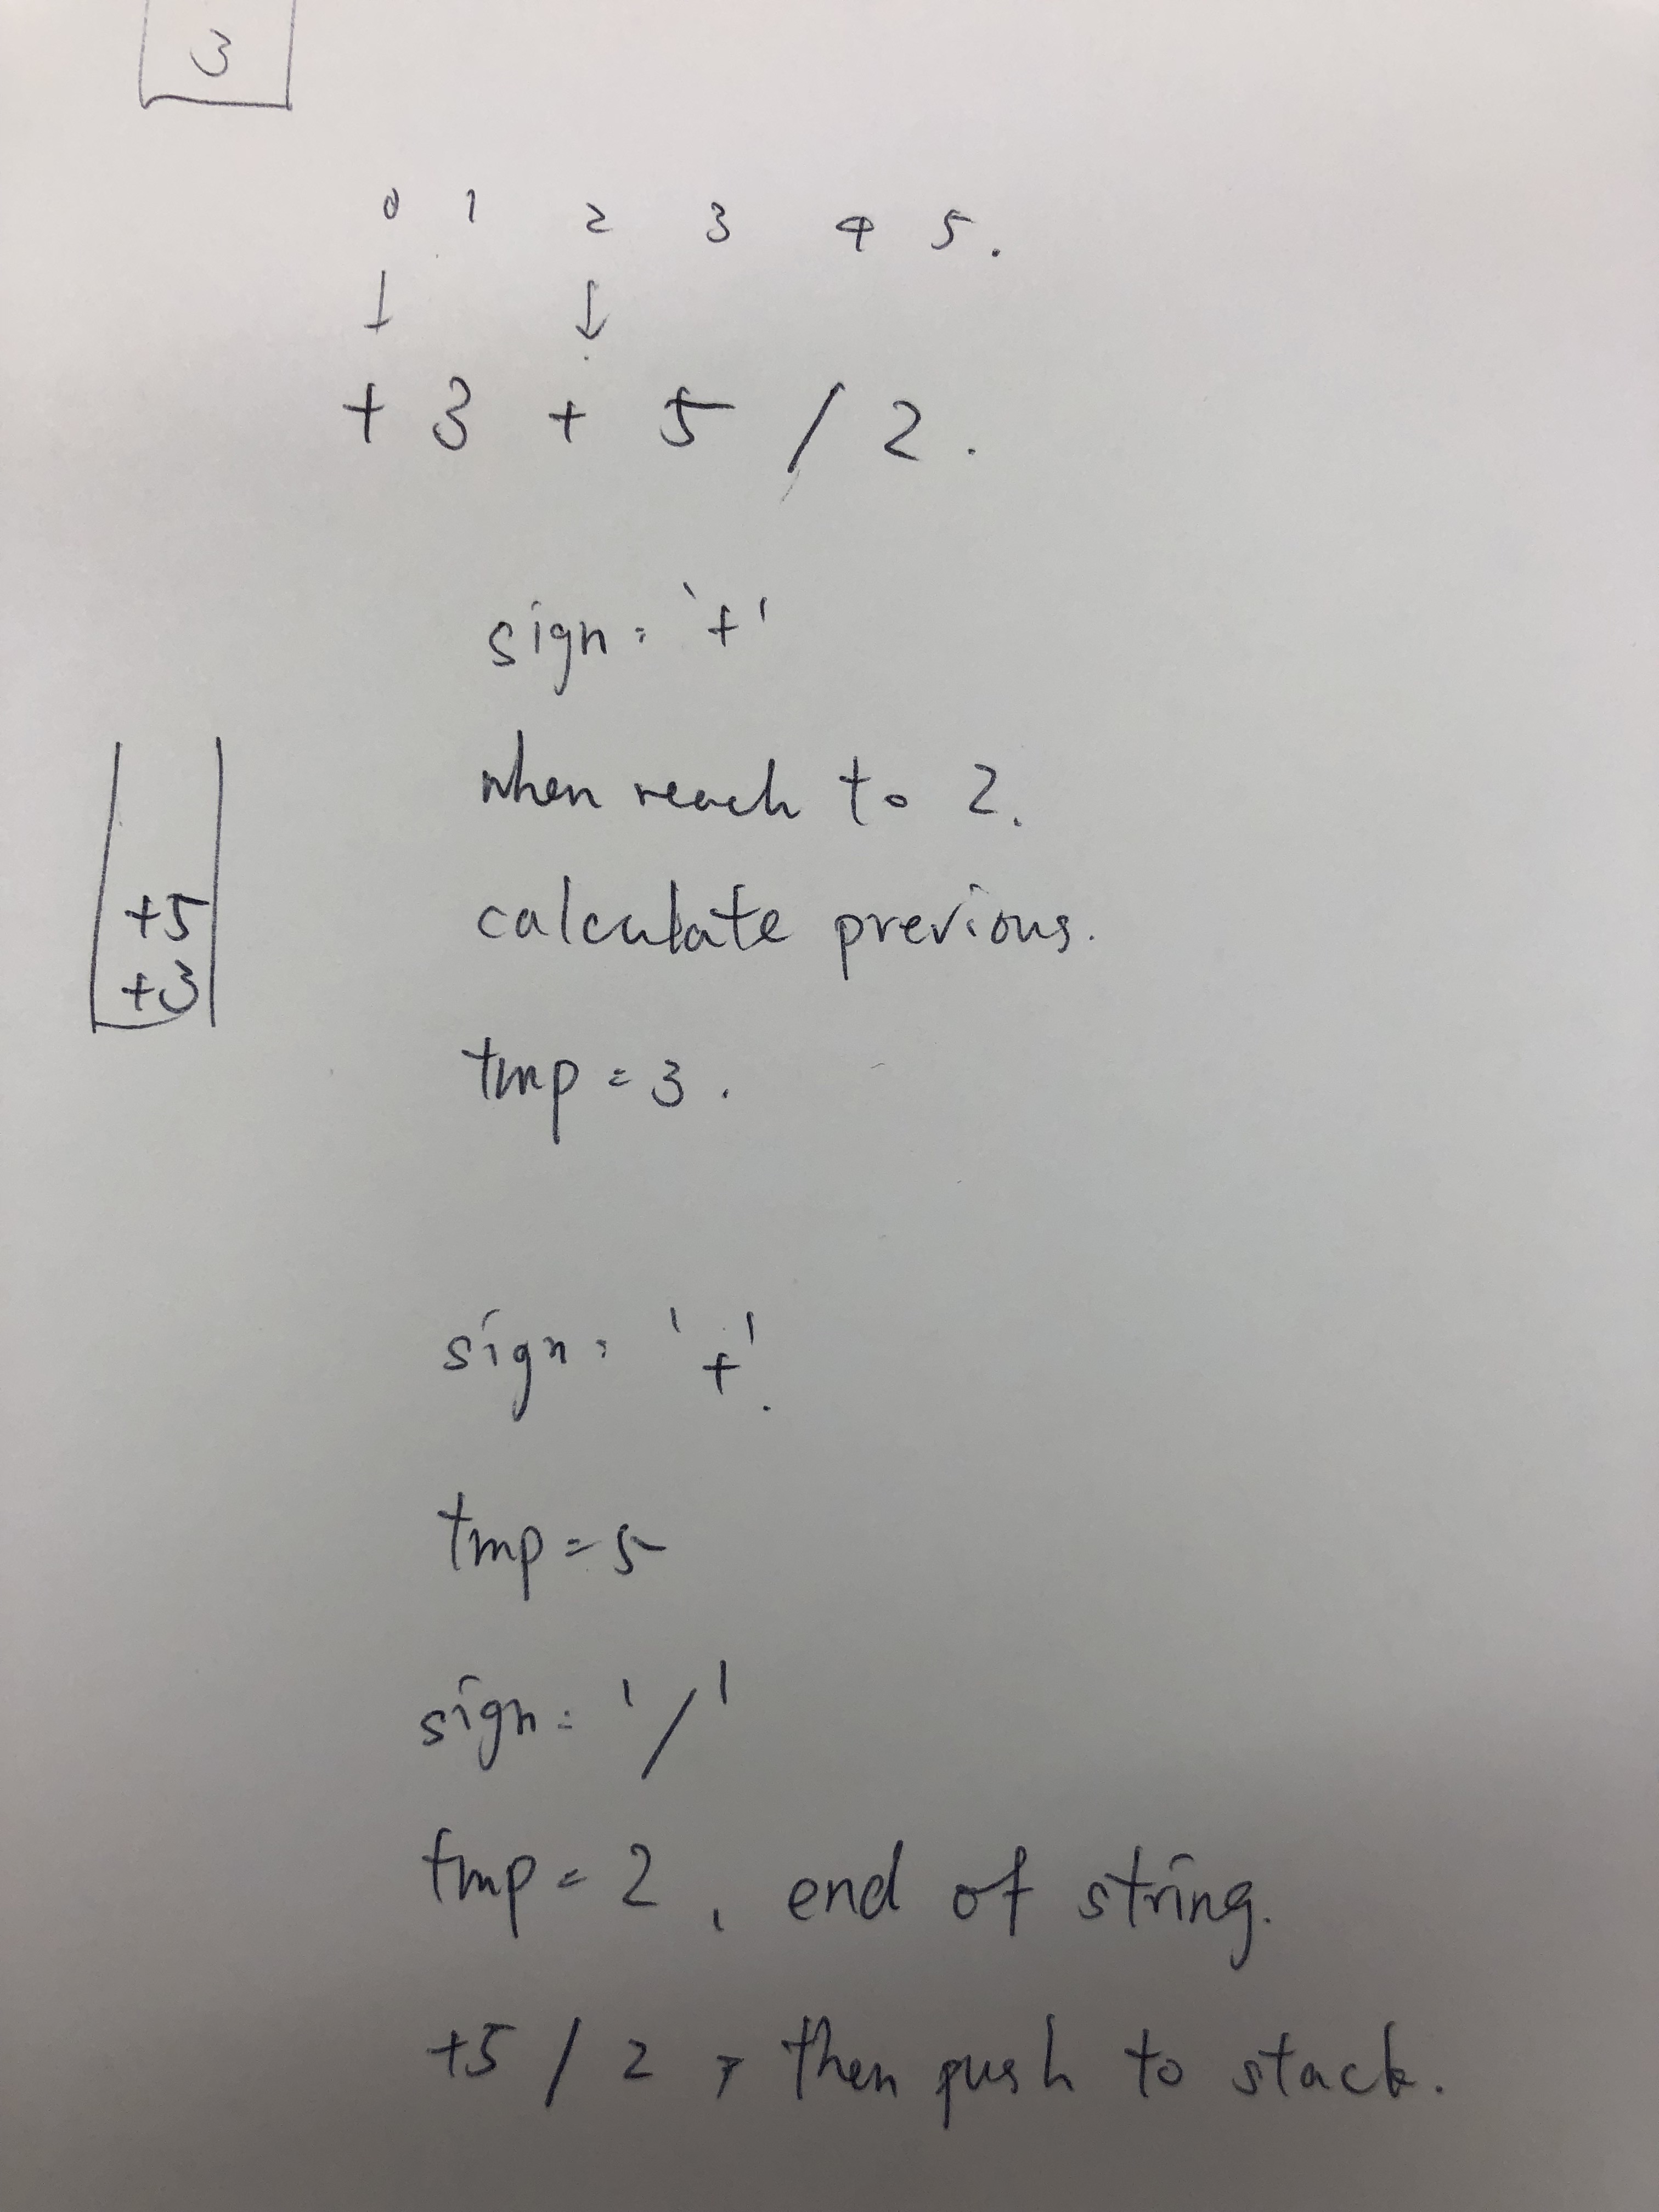 3
0 1 2 3 4 5.
+ 3 + 5 / 2.
sign = '+'
when reach to 2.
calculate previous.
+5
+3
tmp = 3.
sign = '+'.
tmp = 5
sign = '/'
tmp = 2, end of string.
+5 / 2, then push to stack.